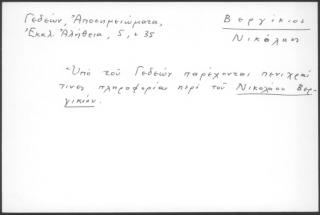 Γεδεών, Ἀποσημειώματα,
Ἐκκλ. Ἀλήθεια, 5, 35
Βεργίκιος
Νικόλαος
Ὑπὸ τοῦ Γεδεὼν παρέχονται πενιχραί
τινες πληροφορίαι περὶ τοῦ Νικολάου Βερ-
γικίου.